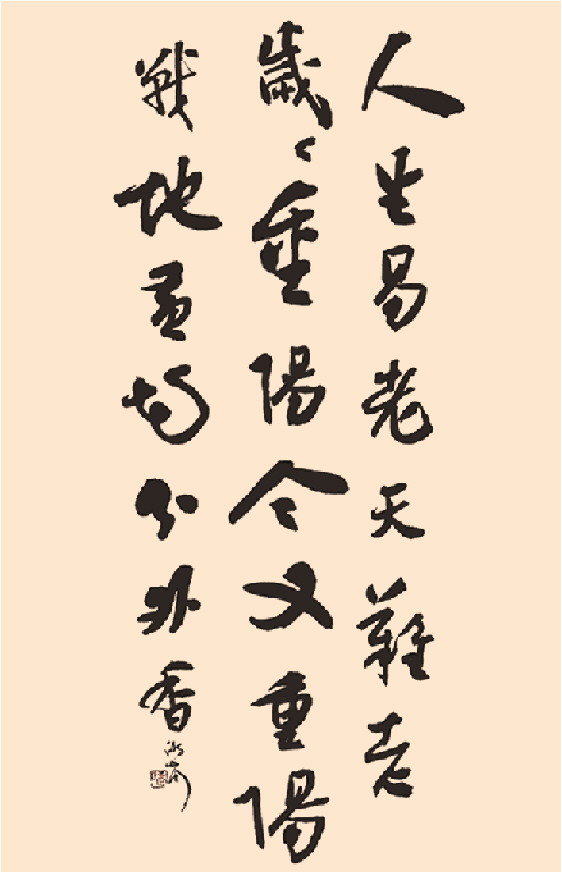 人生易老天難老
歲々重陽今又重陽
戰地黄花分外香